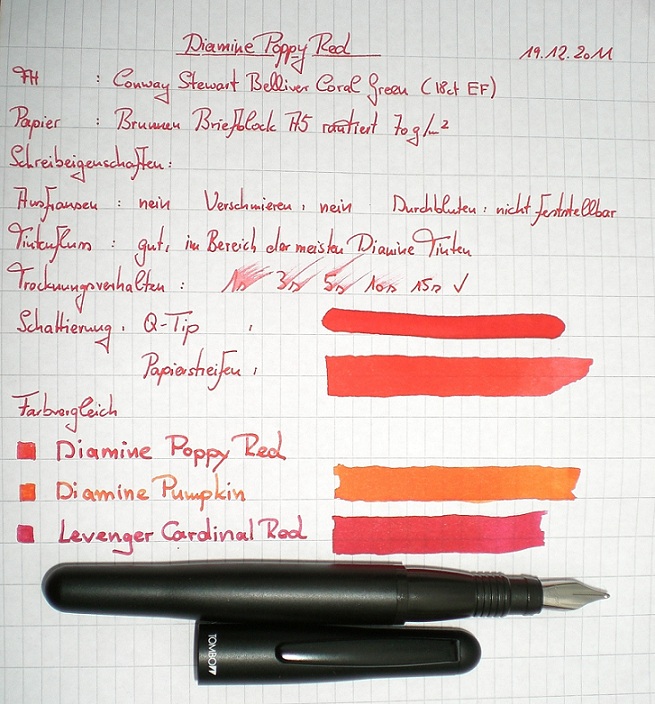 Diamine Poppy Red 19.12.2011
FH : Conway Stewart Belliver Coral Green (18ct EF)
Papier : Brunnen Briefblock A5 rautiert 70g/m²
Schreibeigenschaften:
Ausfransen : nein Verschmieren : nein Durchbluten : nicht feststellbar
Tintenfluss : gut, im Bereich der meisten Diamine Tinten
Trocknungsverhalten : 1s 3s 5s 10s 15s ✓
Schattierung : Q-Tip :
Papierstreifen :
Farbvergleich
Diamine Poppy Red
Diamine Pumpkin
Levenger Cardinal Red
TOMBOW